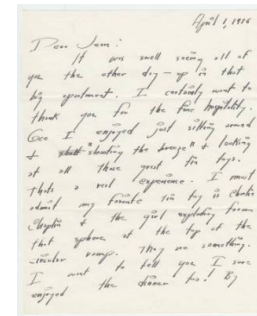 April 1, 1986
Dear Jem:
It was swell seeing all of
you the other day - up in that
big apartment. I certainly want to
thank you for the fine hospitality.
Gee I enjoyed just sitting around
& "shooting the breeze" & looking
at all those great tin toys.
Thats a real experience. I must
admit my favorite tin toy is Charlie
Chaplin & the girl exploding from
that sphere at the top of the
circular ramp. They are something.
I want to tell you I sure
enjoyed the dinner too! By